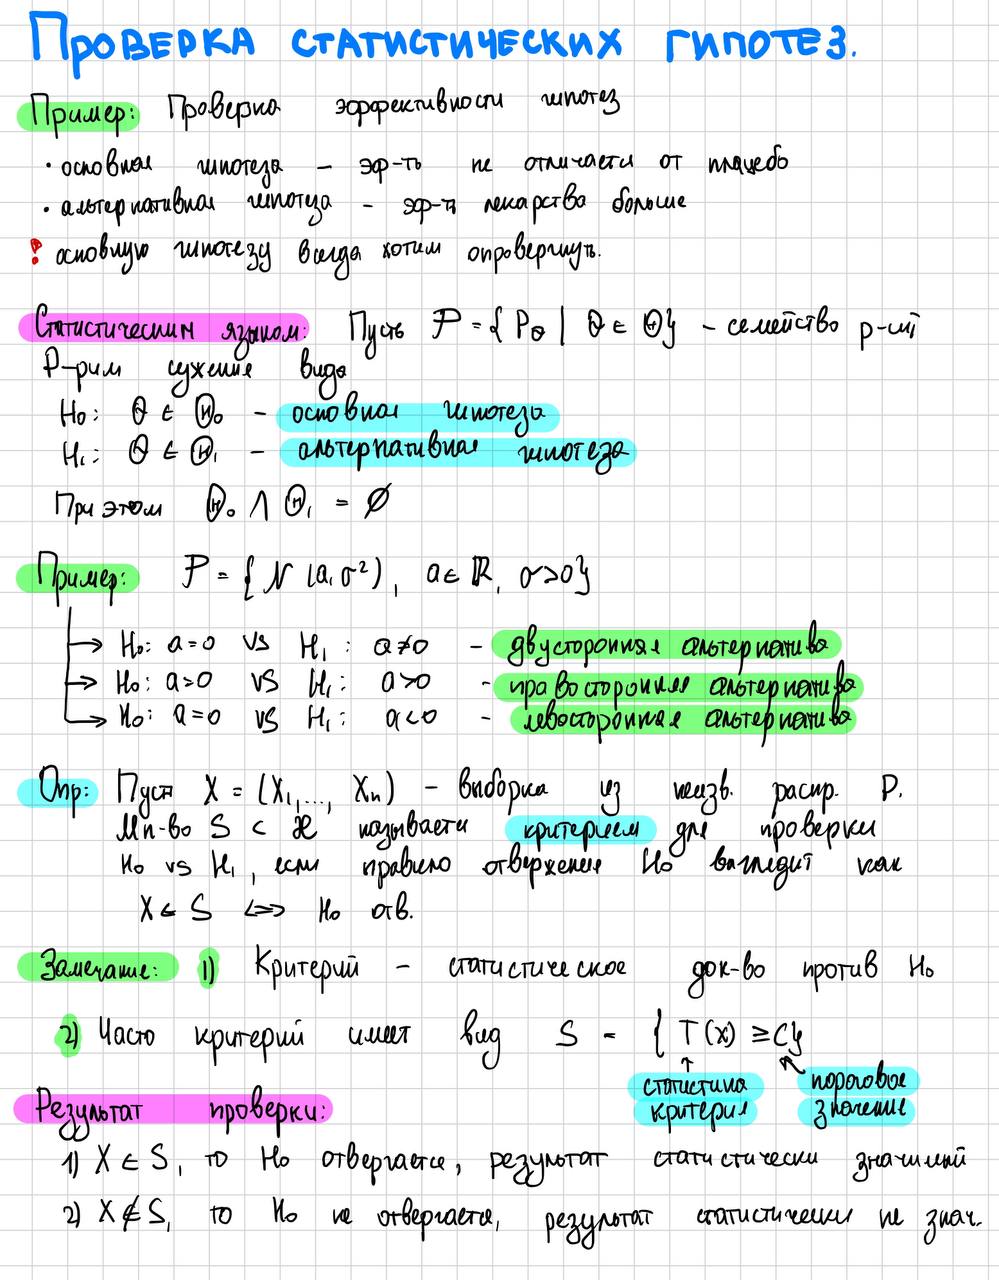 Проверка статистических гипотез.
Пример: Проверка эффективности гипотез
• основная гипотеза – эф-ть не отличается от плацебо
• альтернативная гипотеза – эф-ть лекарства больше
! основную гипотезу всегда хотим опровергнуть.
Статистическим языком: Пусть 𝒫 = { P_θ | θ ∈ Θ} – семейство р-ий
Р-рим сужение вида
H₀: θ ∈ Θ₀ – основная гипотеза
H₁: θ ∈ Θ₁ – альтернативная гипотеза
При этом Θ₀ ∧ Θ₁ = ∅
Пример: 𝒫 = { N (a, σ²), a ∈ ℝ, σ>0}
→ H₀: a=0 vs H₁: a≠0 – двусторонняя альтернатива
→ H₀: a=0 vs H₁: a>0 – правосторонняя альтернатива
→ H₀: a=0 vs H₁: a<0 – левосторонняя альтернатива
Опр: Пусть X = (X₁,..., Xₙ) – выборка из неизв. распр. P.
Мн-во S ⊂ 𝒳 называется критерием для проверки
H₀ vs H₁, если правило отвержения H₀ выглядит как
X ∈ S ⟺ H₀ отв.
Замечание: 1) Критерий – статистическое док-во против H₀
2) Часто критерий имеет вид S = { T(x) ≥ C}
статистика пороговое
критерия значение
Результат проверки:
1) X ∈ S, то H₀ отвергается, результат статистически значимый
2) X ∉ S, то H₀ не отвергается, результат статистически не знач.